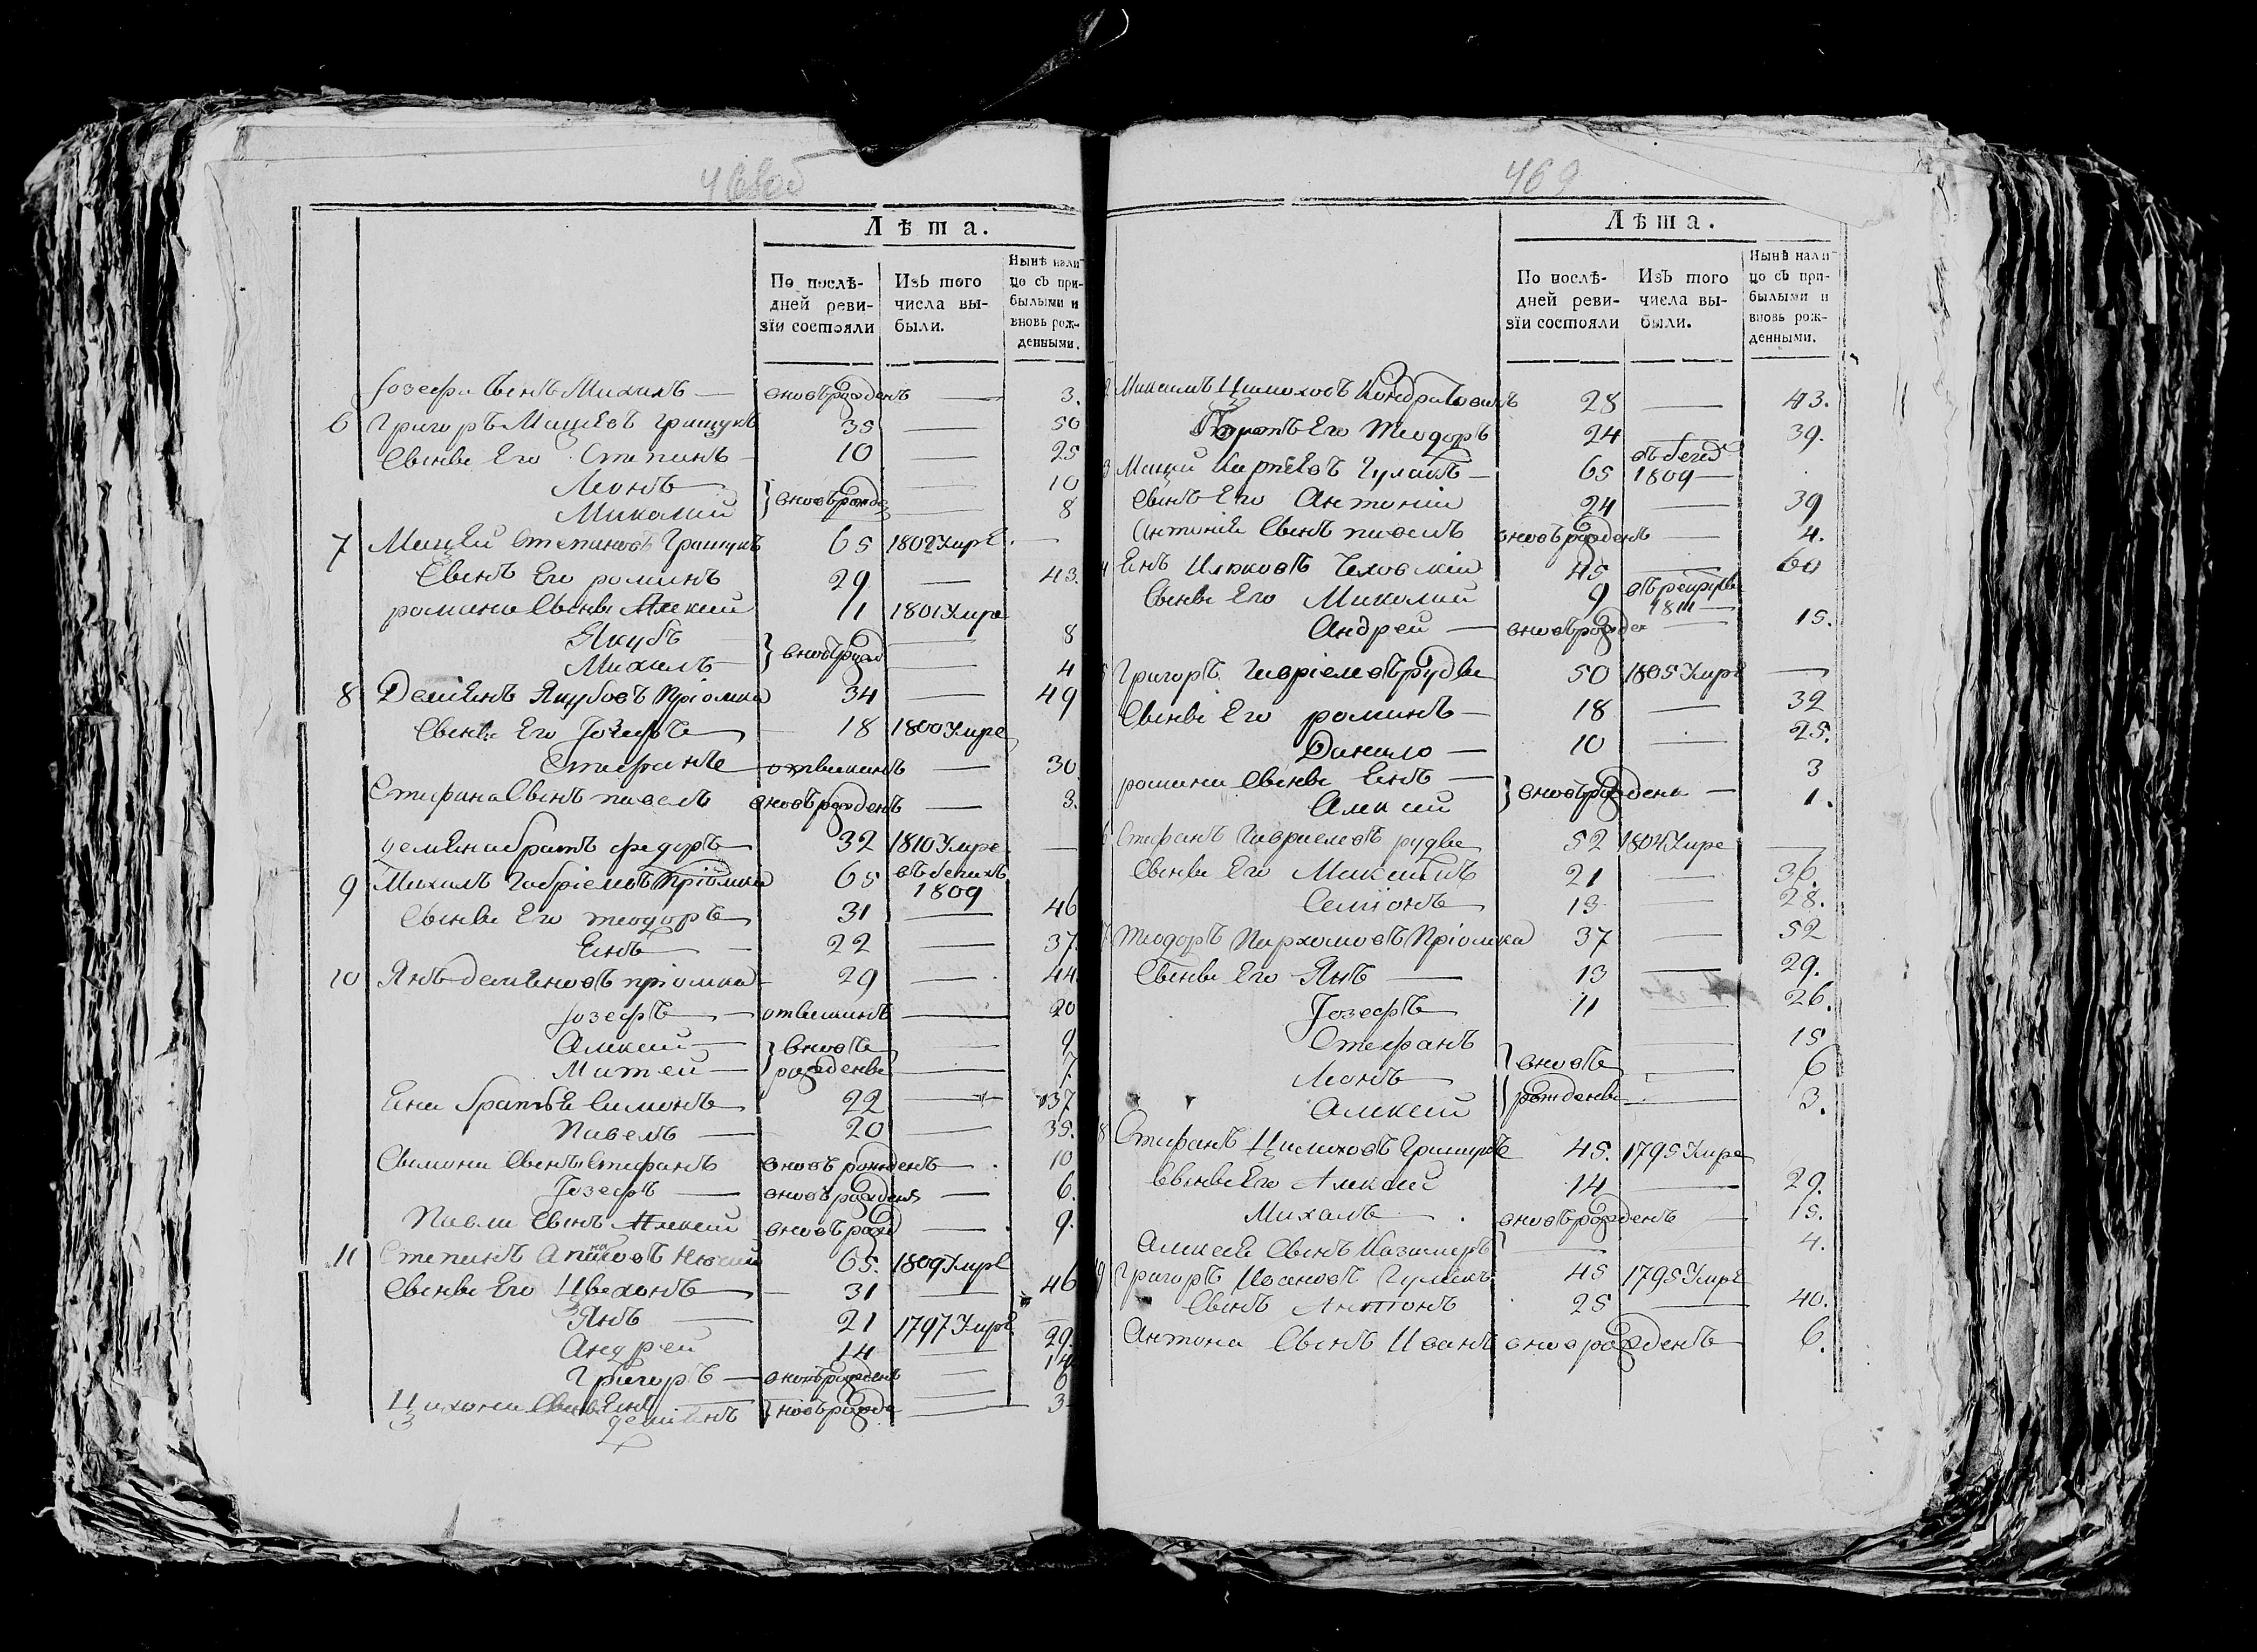 468об
Лѣта.
По послѣ-
дней реви-
зіи состояли
Изъ того
числа вы-
были.
Нынѣ нали-
цо съ при-
былыми и
вновь рож-
денными.
Іозефа Сынъ Михалъ — вновърожденъ — 3.
6 Григоръ Мацѣевъ Грицукъ 35 — 50
Сыны Его Степанъ — 10 — 25
Леонъ — 10
Миколай } вновърожде — 8
7 Мацѣй Степановъ Грицукъ 65 1802 Умре. —
Сынъ Его романъ 29 — 43.
романа Сыны Алексей 11 1801 Умре
Якубъ — 8
Михалъ — } вновърожд — 4
8 Демянъ Якубовъ Пріомка 34 — 49
Сыны Его Іозефъ 18 1800 Умре
Стефанъ — 30
Стефана Сынъ павелъ вновърожденъ — 3.
демянабратъ федоръ 32 1810 Умре —
9 Михалъ Габріеловъ Пріомка 65 въ бегахъ
1809
Сыны Его теодоръ 31 — 46
Енъ — 22 — 37.
10 Янъ демяновъ пріомка 29 — 44
Іозефъ — — 20
Алексей — } вновь — 9
Матей — рожденны — 7
Ена братья Симонъ 22 — 37
Павелъ — 20 — 35.
Сымона Сынъ Стефанъ вновь рожденъ — 10
Іозефъ — вновърожденъ — 6.
Павла Сынъ Алексей вновърожд — 9.
11 Степанъ 65. 1809 Умре
Сыны Его Цыхонъ 31 — 46
Янъ — 21 1797 Умре —
Андрей 14 — 29.
Григоръ — вновърожденъ — 14
Цихона Сыны Енъ — 6
демянъ } новърожде — 3
469
Лѣта.
По послѣ-
дней реви-
зіи состояли
Изъ того
числа вы-
были.
Нынѣ нали-
цо съ при-
былыми и
вновь рож-
денными.
2 Максимъ Цимоховъ Кондратовичъ 28 — 43.
Братъ Его Теодоръ 24 — 39.
въ бегах
3 Мацей Карпѣевъ 65 1809 —
Сынъ Его Антоній 24 — 39
Антонія Сынъ павелъ вновърожденъ — 4.
4 Енъ 45 — 60
Сыны Его Миколай 9
1811 —
Андрей — вновърожде — 15.
5 Григоръ Гавріеловъ руды 50 1805 Умре —
Сыны Его романъ — 18 — 32
Данило — 10 — 25.
романа Сыны Енъ — 3
Алексей } вновърождены — 1.
6 Стефанъ Гавриеловъ руды 52 1804 Умре —
Сыны Его Максимъ 21 — 36.
Семіонъ 13 — 28.
7 Теодоръ Пархомовъ Пріомка 37 — 52
Сыны Его Янъ — 13 — 29.
Іозефъ 11 — 26.
Стефанъ — 15
Леонъ } вновь — 6
Алексей рожденны — 3.
8 Стефанъ Цимоховъ 45. 1795 Умре
Сыны Его Алексей 14 — 29.
Михалъ вновърожденъ — 15.
Алексея Сынъ Казимеръ — 4.
9 Григоръ Ивановъ 45 1795 Умре
Сынъ Антонъ 25 — 40.
Антона Сынъ Иванъ вноврожденъ — 6.